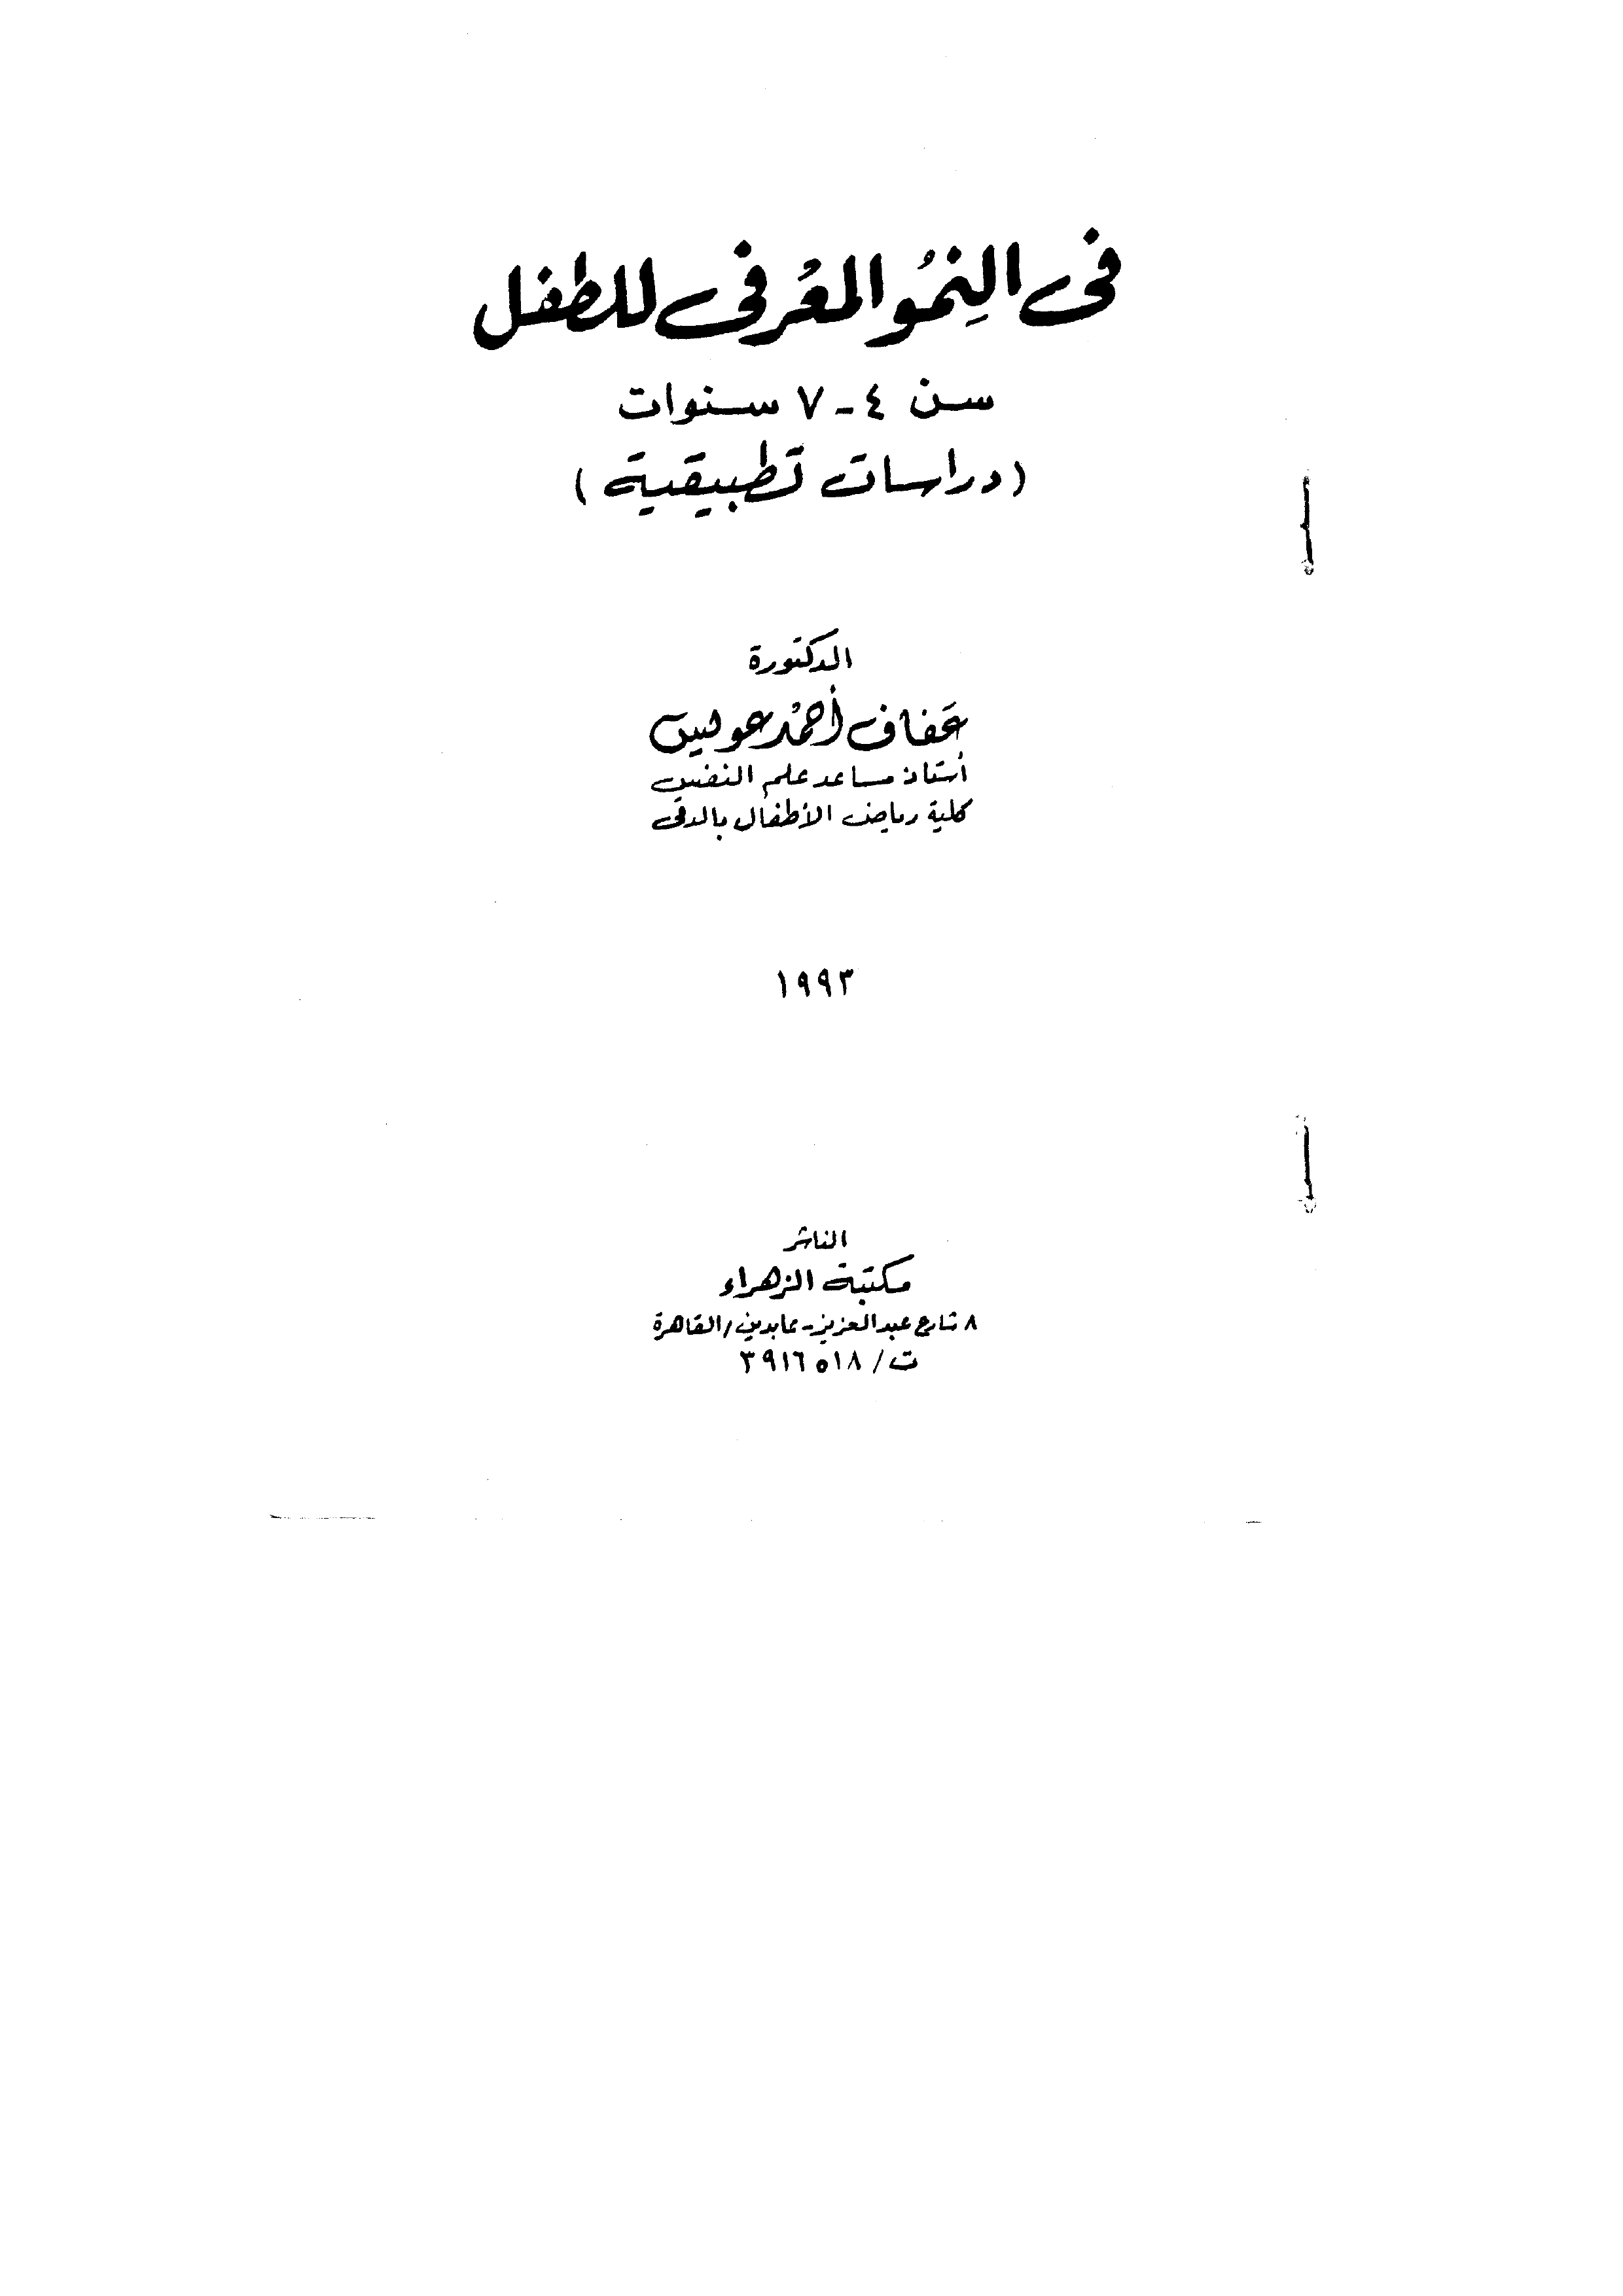 فى النمو المعرفى للطفل
سن ٤ - ٧ سنوات
(دراسات تطبيقية)
الدكتورة
عفاف أحمد عويس
أستاذ مساعد علم النفس
كلية رياض الأطفال بالدقى
١٩٩٣
الناشر
مكتبة الزهراء
٨ شارع عبد العزيز - عابدين / القاهرة
ت / ٣٩١٦٥١٨